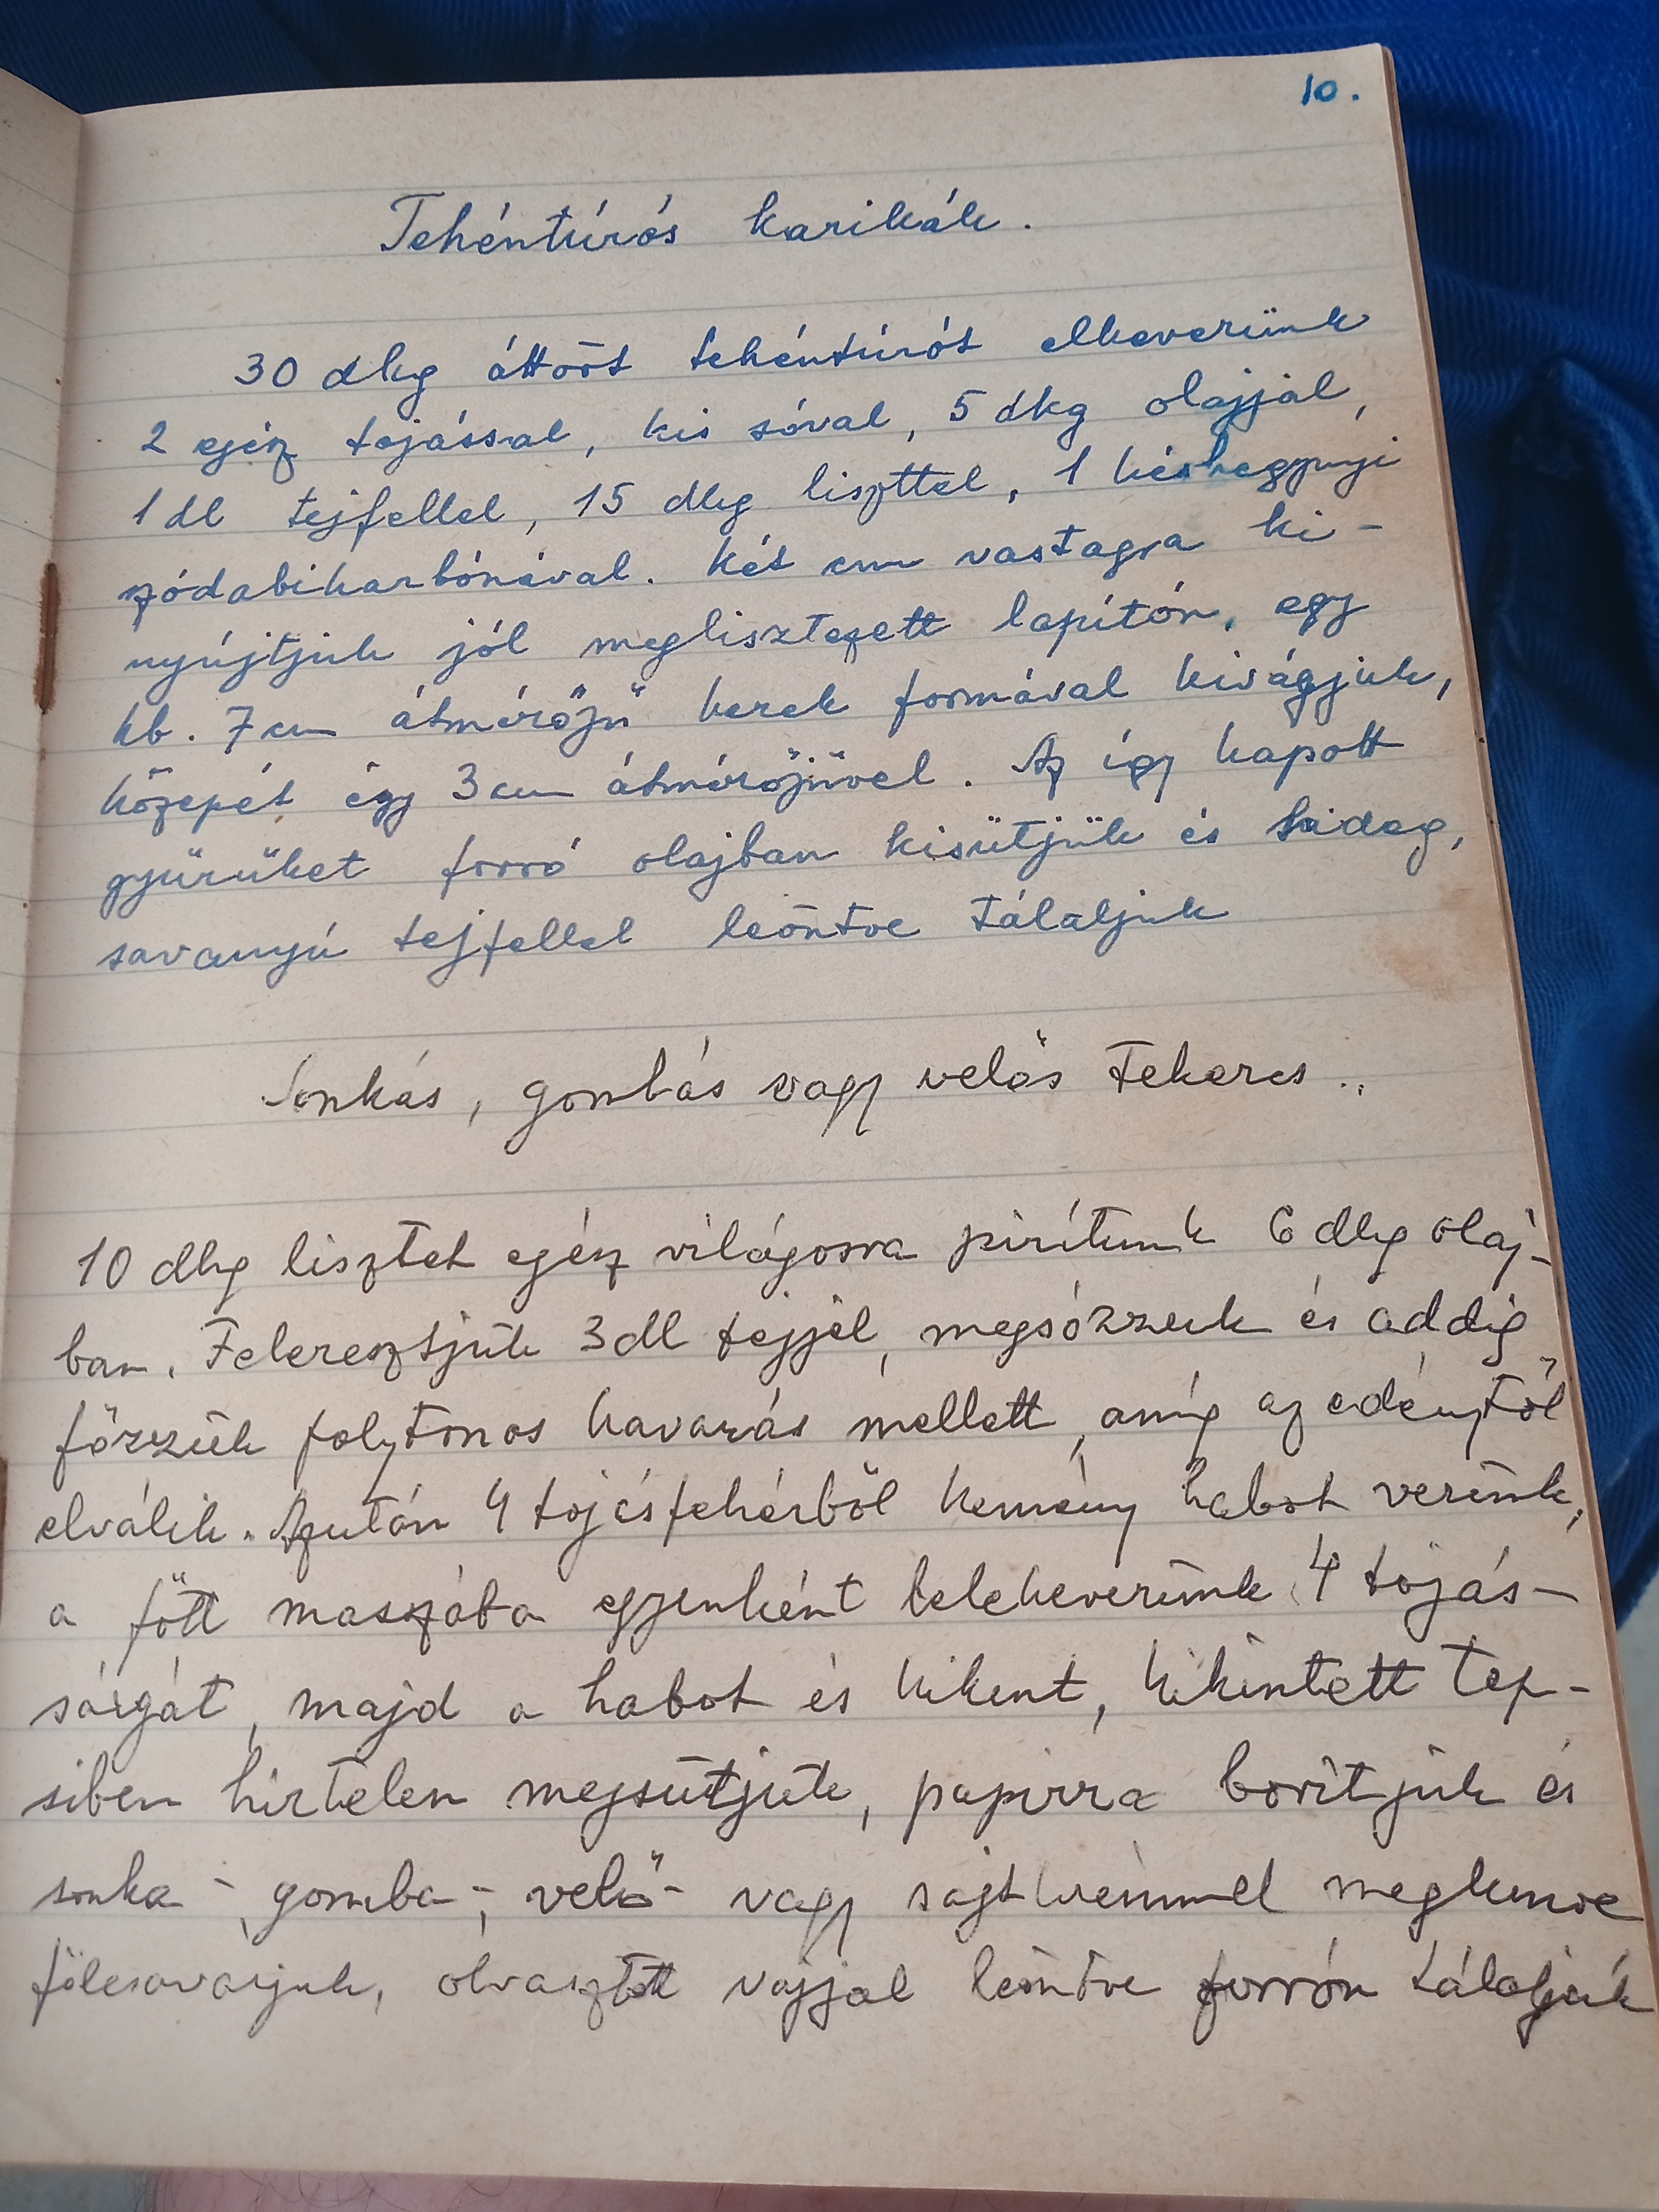 10.
Tehéntúrós karikák.
30 dkg áttört tehéntúrót elkeverünk
2 egész tojással, kis sóval, 5 dkg olajjal,
1 dl tejfellel, 15 dkg liszttel, 1 késhegynyi
szódabikarbónával. Két cm vastagra ki-
nyújtjuk jól meglisztezett lapítón, egy
kb. 7 cm átmérőjű kerek formával kivágjuk,
közepét egy 3 cm átmérőjűvel. Az így kapott
gyürüket forró olajban kisütjük és hideg,
savanyú tejfellel leöntve tálaljuk
Sonkás, gombás vagy velős tekercs.
10 dkg lisztet egész világosra pirítunk 6 dkg olaj-
ban. Feleresztjük 3 dl tejjel, megsózzuk és addig
főzzük folytonos kavarás mellett, amíg az edénytől
elválik. Azután 4 tojásfehérből kemény habot verünk,
a főtt masszába egyenként belekeverünk 4 tojás-
sárgát, majd a habot és kikent, kihintett tep-
siben hirtelen megsütjük, papirra borítjuk és
sonka-, gomba-, velő- vagy sajtkrémmel megkenve
fölcsavarjuk, olvasztott vajjal leöntve forrón tálaljuk